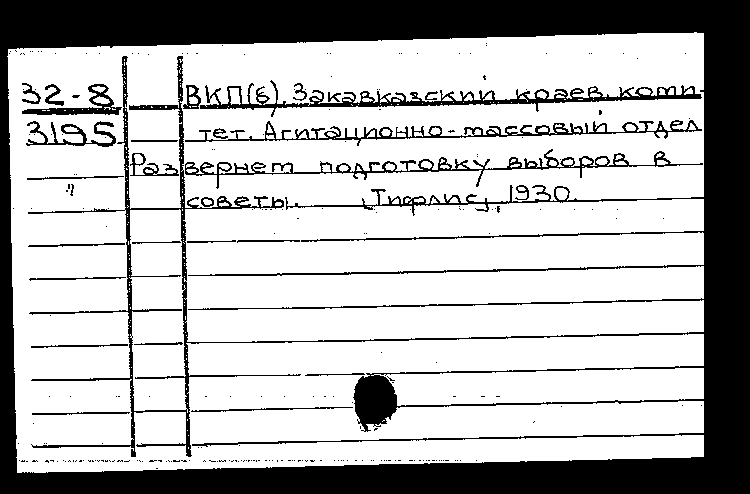 32-8 ВКП(б). Закавказский краев. коми-
3195 тет. Агитационно-массовый отдел
Развернет подготовку выборов в
советы. [Тифлис], 1930.